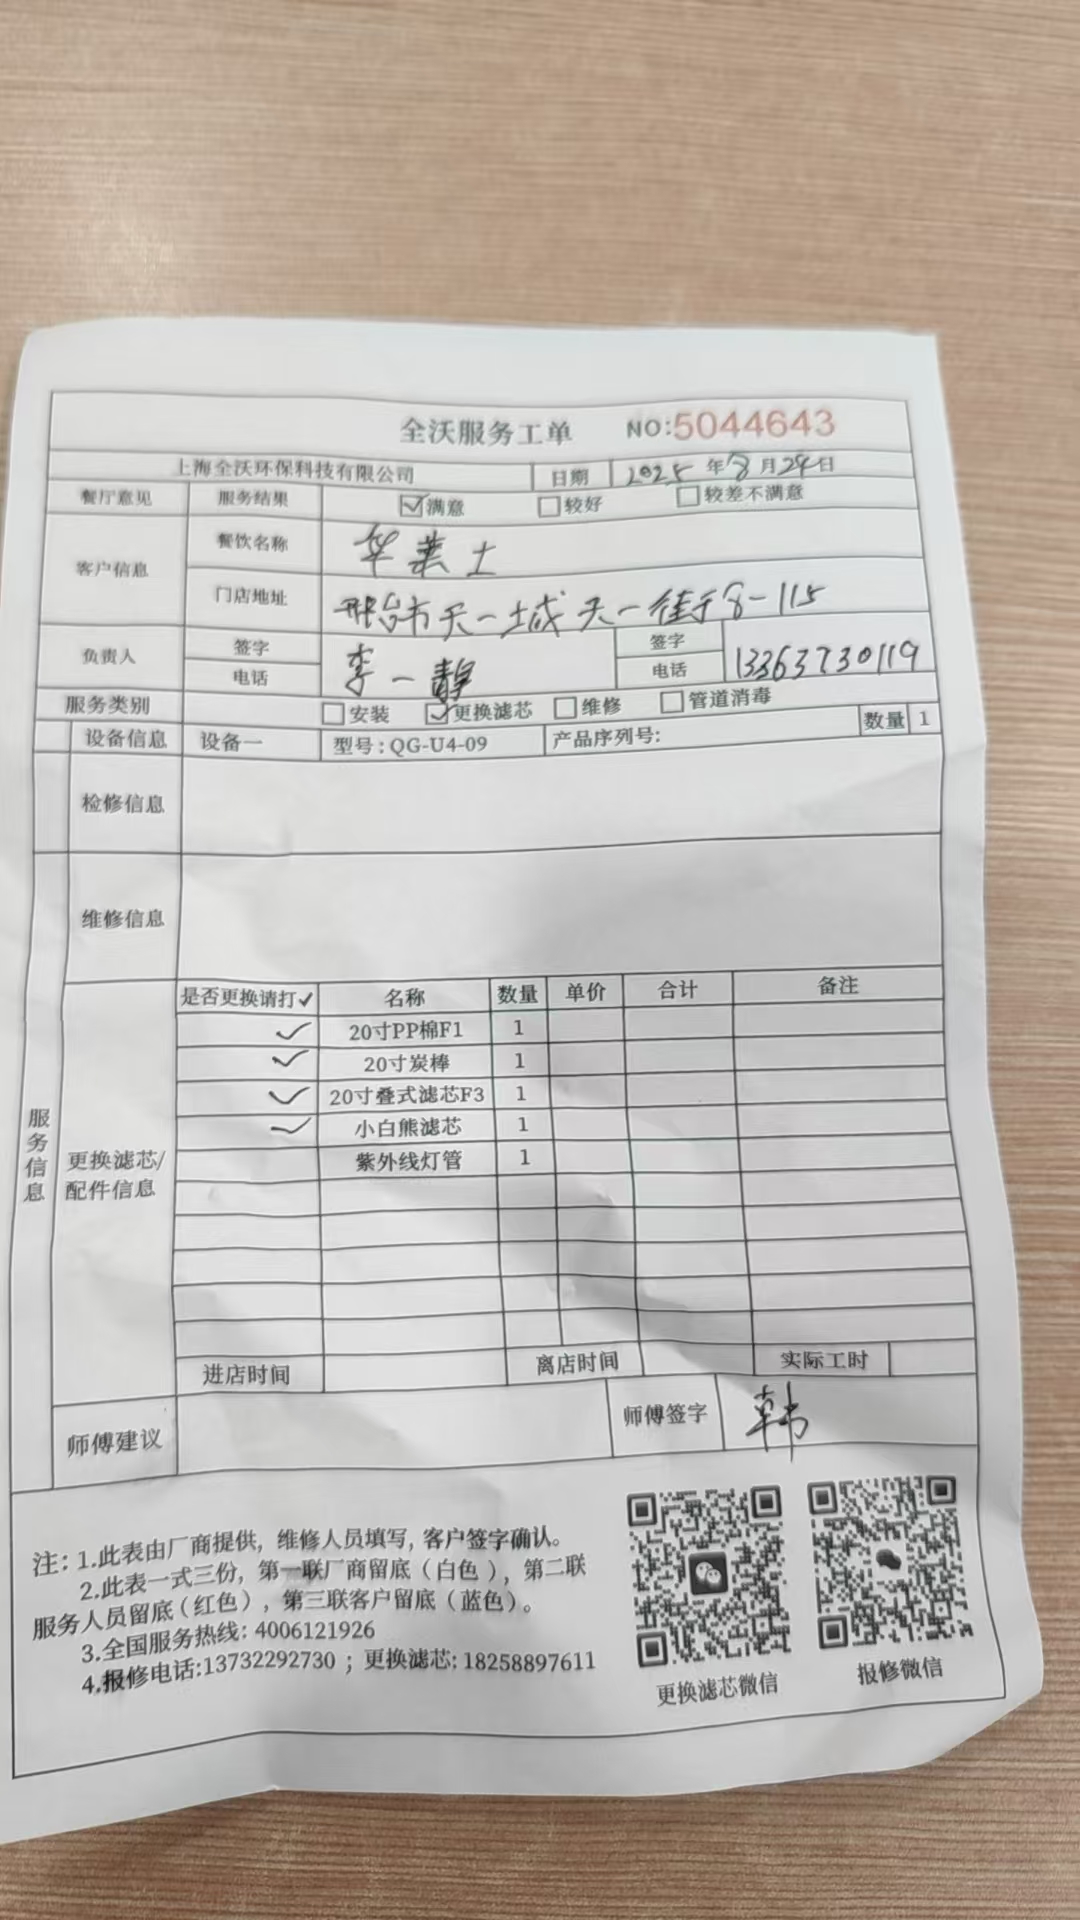 全沃服务工单 NO:5044643
上海全沃环保科技有限公司 日期 2025年8月24日
餐厅意见 服务结果 ☑满意 □较好 □较差不满意
客户信息 餐饮名称 华莱士
门店地址 邢台市天一城天一街8-115
负责人 签字 李一静 签字
电话 电话 13363730119
服务类别 □安装 ☑更换滤芯 □维修 □管道消毒
设备信息 设备一 型号:QG-U4-09 产品序列号: 数量 1
检修信息
维修信息
服务信息
更换滤芯/配件信息
是否更换请打✓ 名称 数量 单价 合计 备注
✓ 20寸PP棉F1 1
✓ 20寸炭棒 1
✓ 20寸叠式滤芯F3 1
✓ 小白熊滤芯 1
紫外线灯管 1
进店时间 离店时间 实际工时
师傅建议 师傅签字 韩
注: 1.此表由厂商提供, 维修人员填写, 客户签字确认。
2.此表一式三份, 第一联厂商留底(白色), 第二联
服务人员留底(红色), 第三联客户留底(蓝色)。
3.全国服务热线: 4006121926
4.报修电话:13732292730 ; 更换滤芯: 18258897611
更换滤芯微信 报修微信